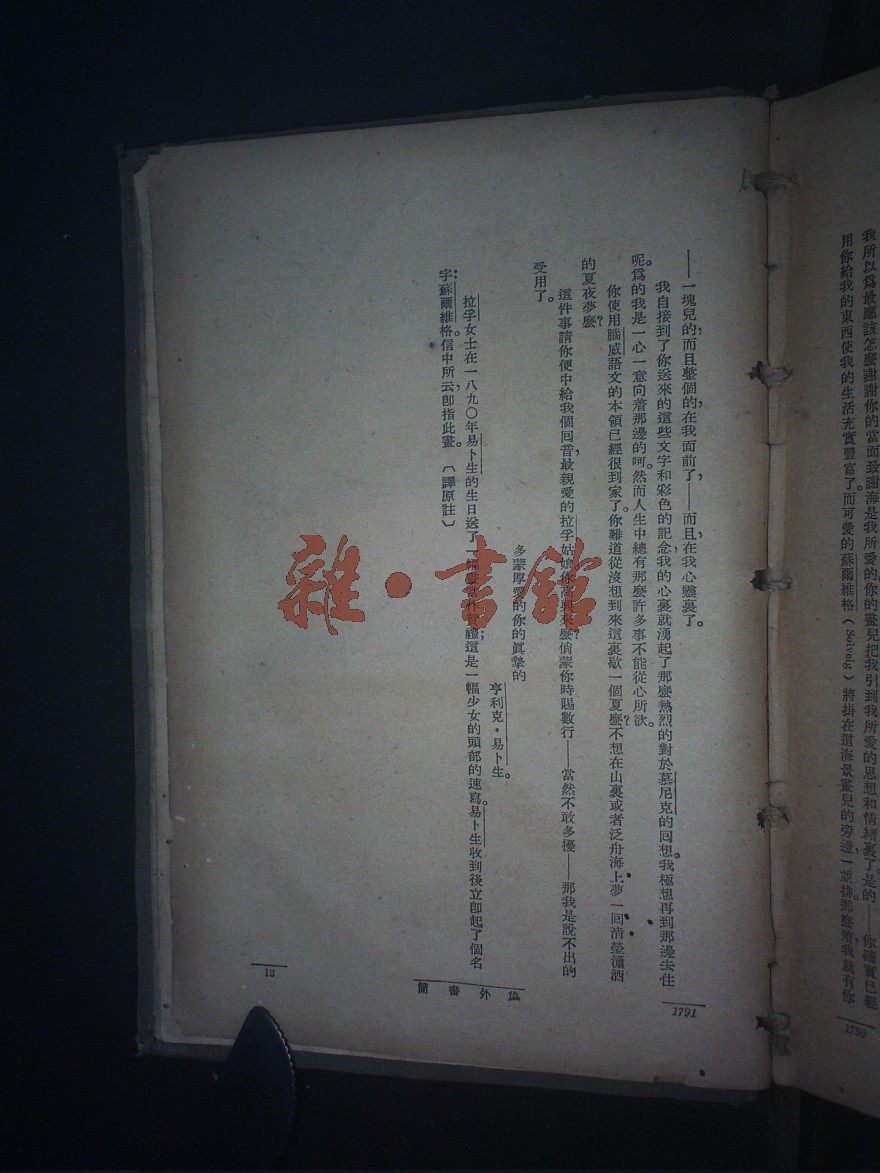 我所以爲最應該怎麼謝謝你的當面致謝海是我所愛的,你的畫兒把我引到我所愛的思想和情緒裏了。是的——你確實已經
用你給我的東西使我的生活充實豐富了。而可愛的蘇爾維格(Solveig)將掛在這海景畫兒的旁邊,一並排那麼着,我就有你
1790
——一塊兒的,而且整個的,在我面前了,——而且,在我心靈裏了。
我自接到了你送來的這些文字和彩色的記念,我的心裏就湧起了那麼熱烈的對於慕尼克的回想。我極想再到那邊去住
呢。爲的我是一心一意向着那邊的呵。然而人生中總有那麼許多事不能從心所欲。
你使用腦威語文的本領已經很到家了。你難道從沒想到來這裏歇一個夏麼?不想在山裏或者泛舟海上,夢一回清瑩瀟洒
的夏夜夢麼?
這件事請你便中給我個回音,最親愛的拉孚姑娘,你高興來麼?倘蒙你時賜數行——當然不敢多擾——那我是說不出的
受用了。
多蒙厚愛的你的眞摯的
亨利克·易卜生。
拉孚女士在一八九〇年易卜生的生日送了一幅畫當作賀禮;這是一幅少女的頭部的速寫。易卜生收到後立卽起了個名
字:蘇爾維格。信中所云,卽指此畫。(譯原註)
1791
集外書簡
13
雜·書館